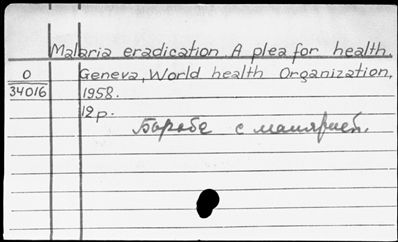 Malaria eradication. A plea for health.
O
34016
Geneva, World health Organization,
1958.
12 p.
Борьбе с малярией.